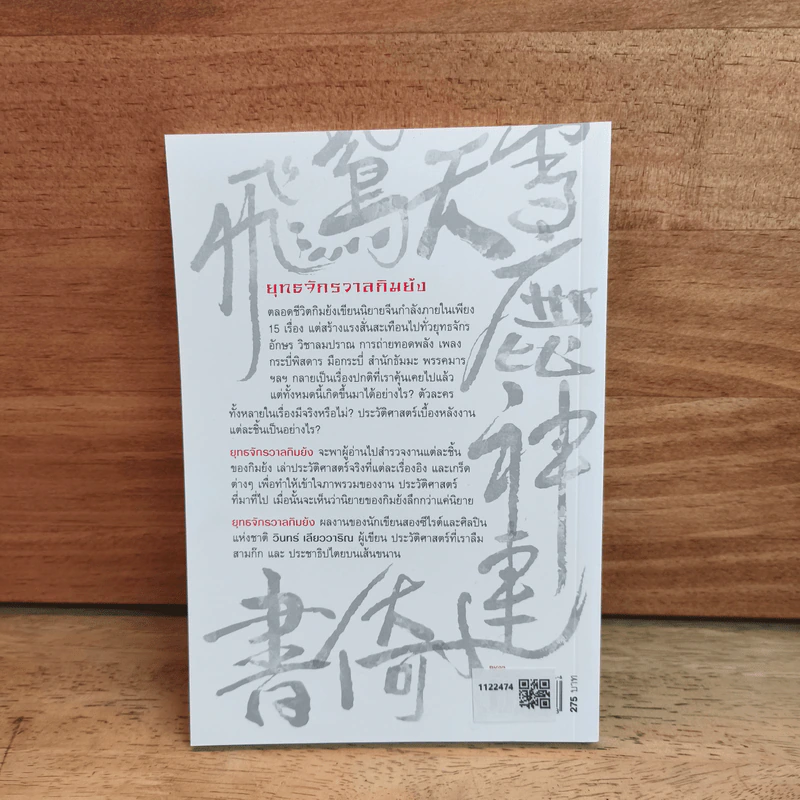 飛
鴛
天
雪
鹿
神
連
倚
書
ยุทธจักรวาลกิมย้ง
ตลอดชีวิตกิมย้งเขียนนิยายจีนกำลังภายในเพียง
15 เรื่อง แต่สร้างแรงสั่นสะเทือนไปทั่วยุทธจักร
อักษร วิชาลมปราณ การถ่ายทอดพลัง เพลง
กระบี่พิสดาร มือกระบี่ สำนักธัมมะ พรรคมาร
ฯลฯ กลายเป็นเรื่องปกติที่เราคุ้นเคยไปแล้ว
แต่ทั้งหมดนี้เกิดขึ้นมาได้อย่างไร? ตัวละคร
ทั้งหลายในเรื่องมีจริงหรือไม่? ประวัติศาสตร์เบื้องหลังงาน
แต่ละชิ้นเป็นอย่างไร?
ยุทธจักรวาลกิมย้ง จะพาผู้อ่านไปสำรวจงานแต่ละชิ้น
ของกิมย้ง เล่าประวัติศาสตร์จริงที่แต่ละเรื่องอิง และเกร็ด
ต่างๆ เพื่อทำให้เข้าใจภาพรวมของงาน ประวัติศาสตร์
ที่มาที่ไป เมื่อนั้นจะเห็นว่านิยายของกิมย้งลึกกว่าแค่นิยาย
ยุทธจักรวาลกิมย้ง ผลงานของนักเขียนสองซีไรต์และศิลปิน
แห่งชาติ วินทร์ เลียววาริณ ผู้เขียน ประวัติศาสตร์ที่เราลืม
สามก๊ก และ ประชาธิปไตยบนเส้นขนาน
1122474
275 บาท